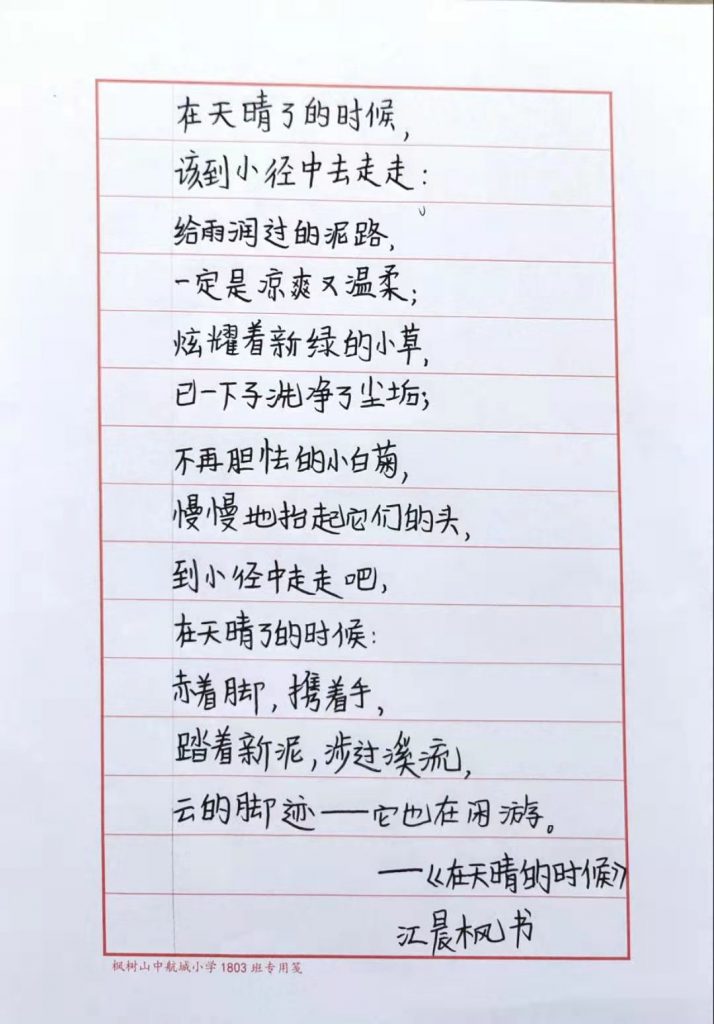 在天晴了的时候，
该到小径中去走走：
给雨润过的泥路，
一定是凉爽又温柔；
炫耀着新绿的小草，
已一下子洗净了尘垢；
不再胆怯的小白菊，
慢慢地抬起它们的头，
到小径中走走吧，
在天晴了的时候：
赤着脚，携着手，
踏着新泥，涉过溪流，
云的脚迹——它也在闲游。
——《在天晴的时候》
江晨枫书
枫树山中航城小学1803班专用笺